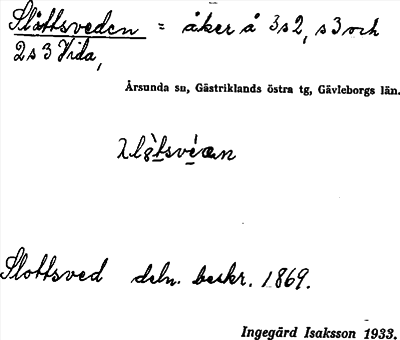 Slåttsveden = åker å 3s2, s3 och
2s3 Vida,
Årsunda sn, Gästriklands östra tg, Gävleborgs län.
Slottsved deln. beskr. 1869.
Ingegärd Isaksson 1933.